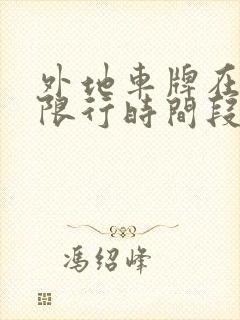 外地車牌在
限行時間段
馮紹峰